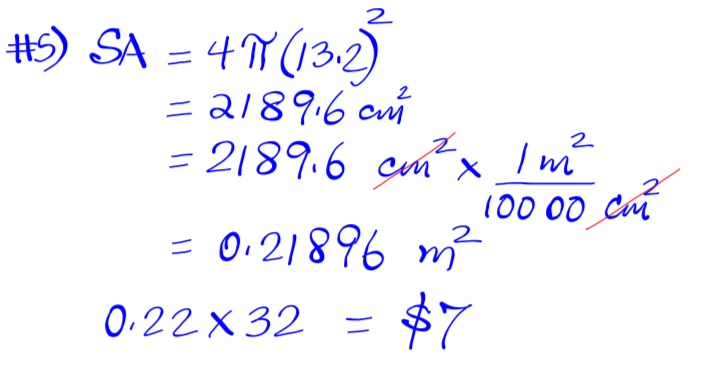 #5) SA = 4π(13.2)²
= 2189.6 cm²
= 2189.6 cm² × 1 m² / 10000 cm²
= 0.21896 m²
0.22 × 32 = $7